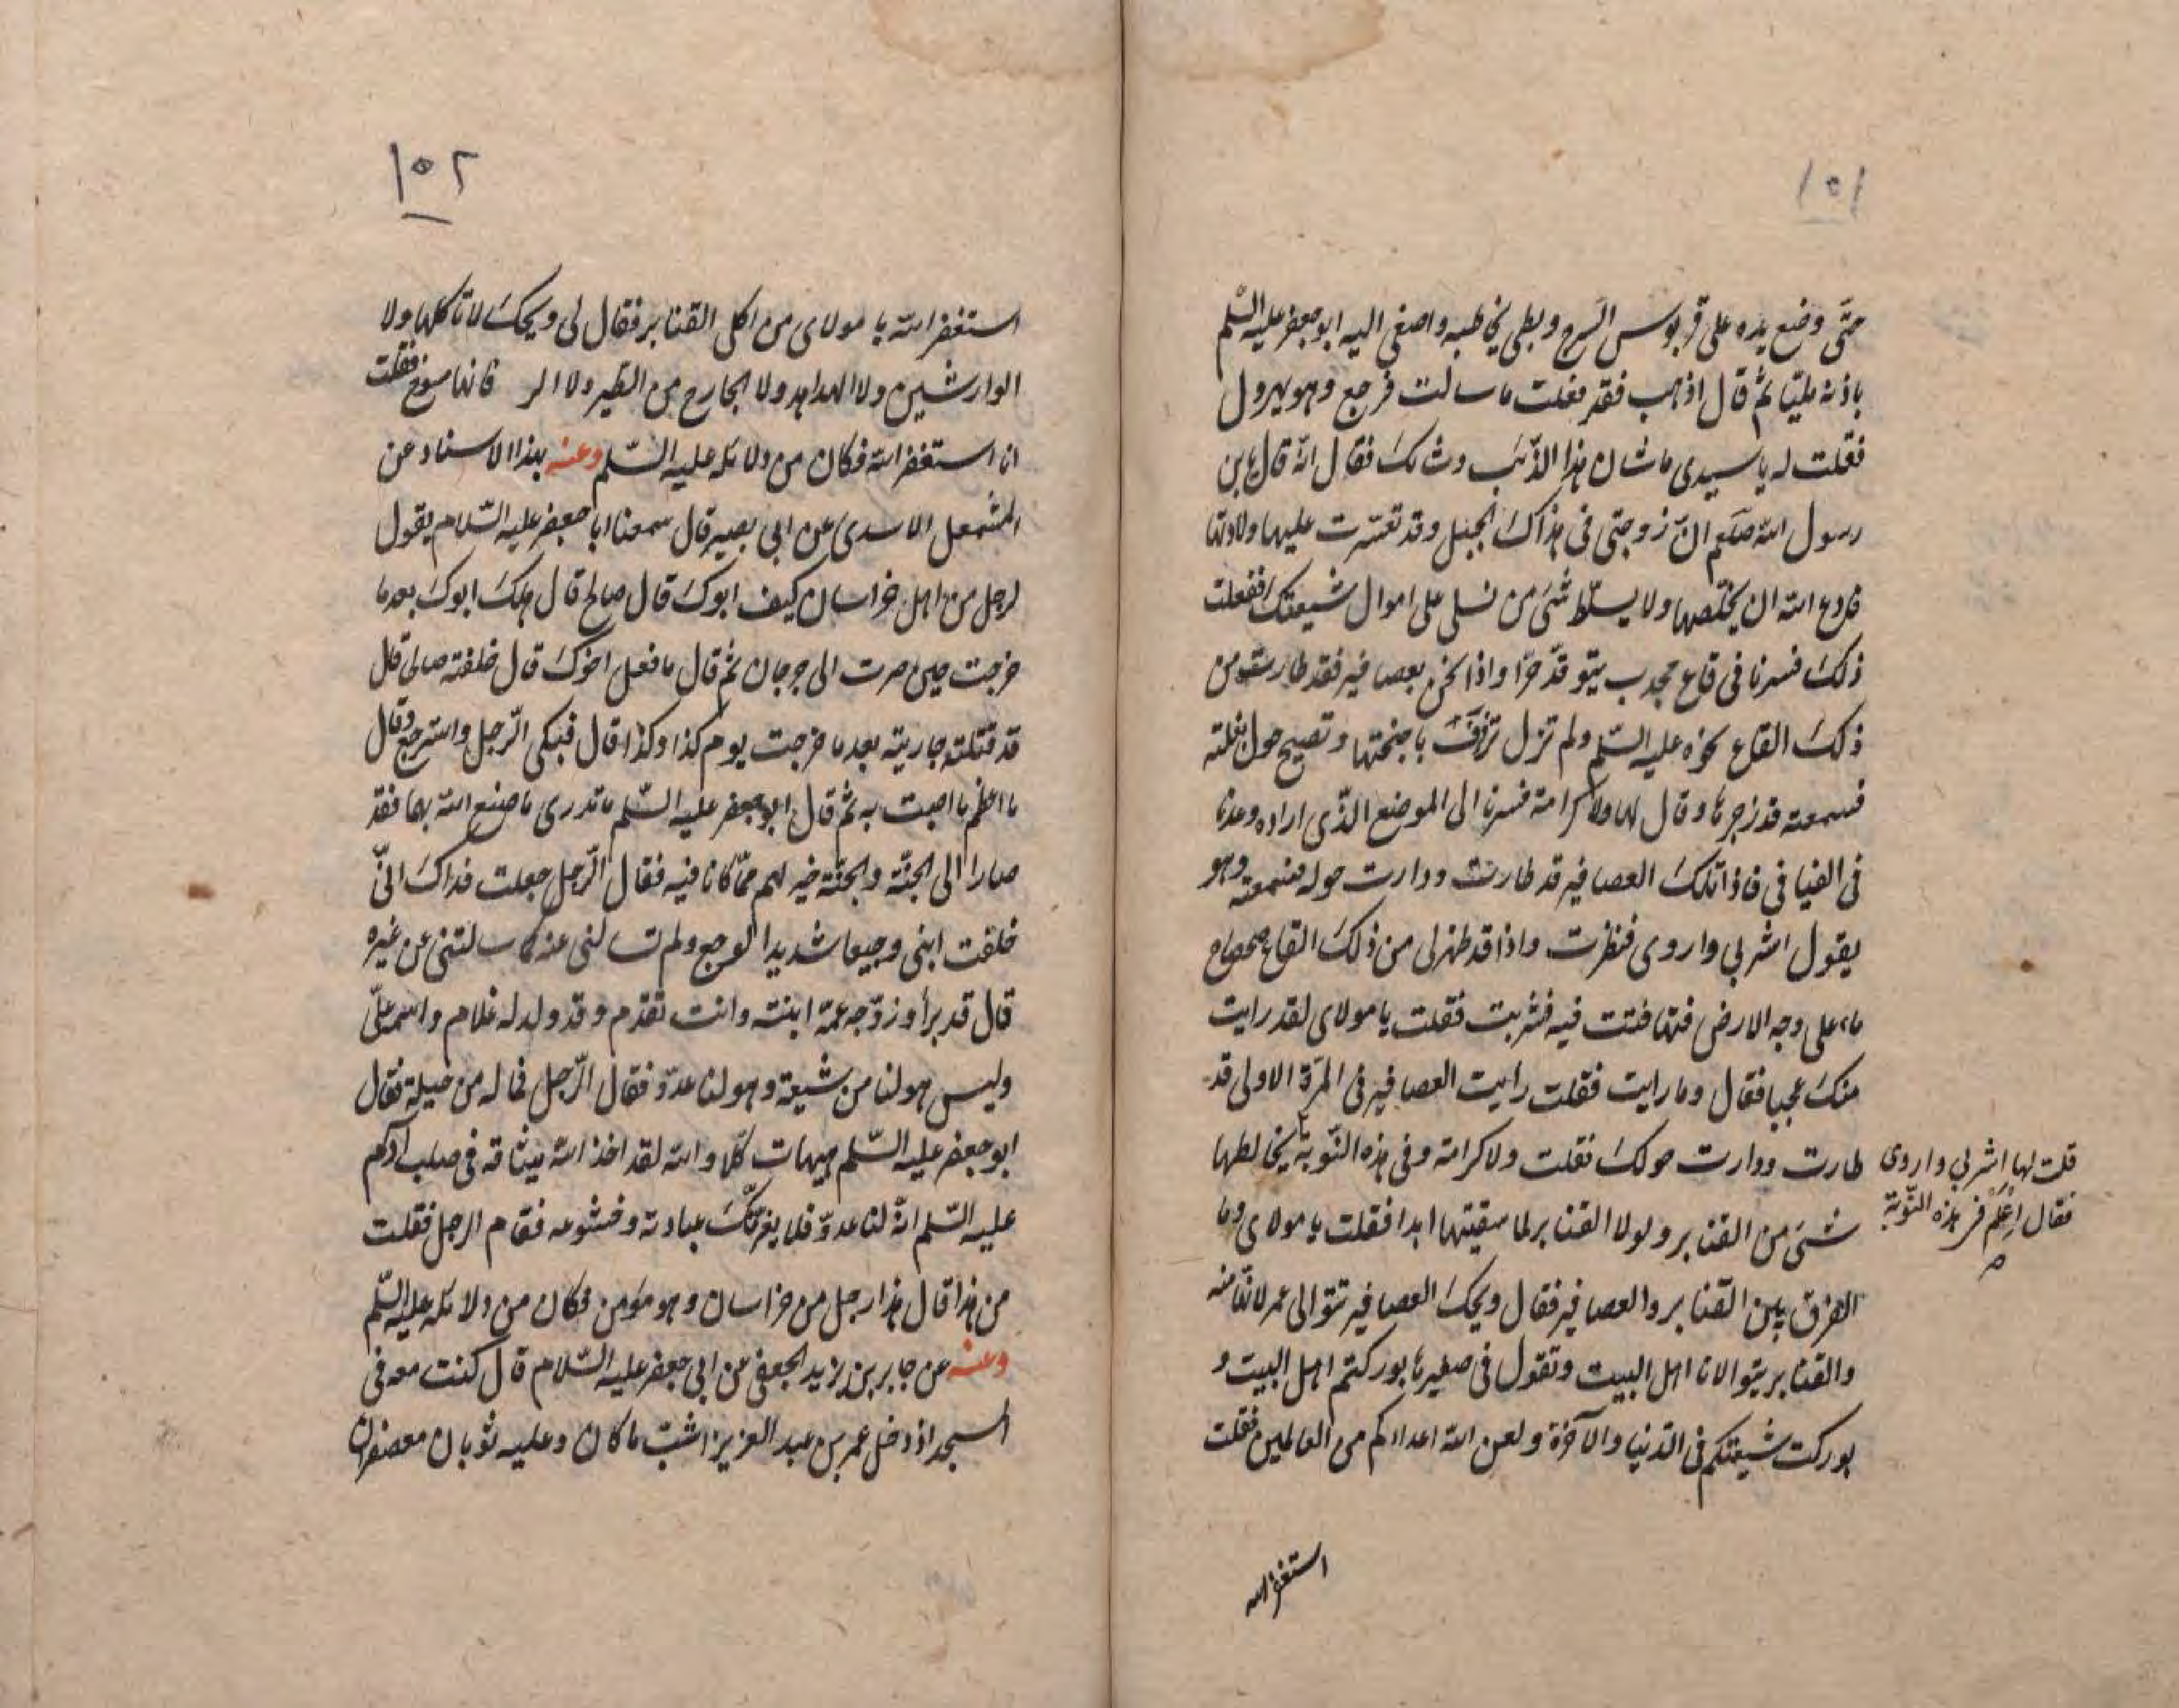 ١٥١
حتّى وضع يده على قربوس السرج وبطى يخاطبه واصغى اليه ابو جعفر عليه السّلم
باذنه مليّا ثم قال اذهب فقد فعلت ما سالت فرجع وهو يهرول
فقلت له يا سيدى ما شان هذا الذّئب وشانك فقال انّه قال يا بن
رسول الله صلعم انّ زوجتى فى هذاك الجبل وقد تعسّرت عليها ولادتها
فادع الله ان يخلّصها ولا يسلّط شئ من نسلى على اموال شيعتك ففعلت
ذلك فسرنا فى قاع مجدب يتوقّد حرّا واذا نحن بعصافير فقد طارت من
ذلك القاع نحوه عليه السّلم ولم تزل تزفّف باجنحتها وتصيح حول بغلته
فسمعته قد زجرها وقال لها ولا كرامة فسرنا الى الموضع الذّى اراده وعدنا
فى الفيافى فاذا تلك العصافير قد طارت ودارت حوله فسمعته وهو
يقول اشربى واروى فنظرت واذا قد ظهر لى من ذلك القاع ضحضاح
ماء على وجه الارض فيه فشربت فقلت يا مولاى لقد رايت
منك عجبا فقال وما رايت فقلت رايت العصافير فى المرّة الاولى قد
طارت ودارت حولك فقلت ولا كرامة وفى هذه النّوبة يخالطها
قلت لها اشربى واروى
فقال اعلم فى هذه النّوبة
شئ من القنابر ولولا القنابر لما سقيتها ابدا فقلت يا مولاى وما
الفرق بين القنابر والعصافير فقال ويحك العصافير تتوالى عمر لانّها منه
والقنابر يتوالانا اهل البيت وتقول فى صفيرها بوركتم اهل البيت و
بوركت شيعتكم فى الدّنيا والآخرة ولعن الله اعداءكم من العالمين فقلت
استغفر الله
١٥٢
استغفر الله يا مولاى من اكل القنابر فقال لى ويحك لا تاكلها ولا
الوارشين ولا الهداهد ولا الجارح من الطير ولا فانها مسوخ فقلت
انا استغفر الله فكان من دلائله عليه السّلم وعنه بهذا الاسناد عن
المشمعل الاسدى عن ابى بصير قال سمعنا ابا جعفر عليه السّلام يقول
لرجل من اهل خراسان كيف ابوك قال صالح قال هلك ابوك بعد ما
خرجت حين صرت الى جرجان ثم قال ما فعل اخوك قال خلفته صالحا قال
قد قتلته جاريته بعد ما خرجت يوم كذا وكذا قال فبكى الرّجل واسترجع وقال
ما اعظم ما اصبت به ثم قال ابو جعفر عليه السّلم ما تدرى ما صنع الله بهما فقد
صارا الى الجنّة والجنّة خير لهم ممّا كانا فيه فقال الرّجل جعلت فداك انّى
خلفت ابنى وجيعا شديدا الوجع ولم تسالنى عنه كما سالتنى عن غيره
قال قد برأ وزوّجه عمّه ابنته وانت تقدم وقد ولد له غلام واسمه علىّ
وليس هو لنا من شيعة وهو لنا عدوّ فقال الرّجل فما له من حيلة فقال
ابو جعفر عليه السّلم هيهات كلّا والله لقد اخذ الله ميثاقه فى صلب آدم
عليه السّلم انّه لنا عدوّ فلا يغرّنّك عبادته وخشوعه فقام الرجل فقلت
من هذا قال هذا رجل من خراسان وهو مؤمن فكان من دلائله عليه السّلم
وعنه عن جابر بن يزيد الجعفى عن ابى جعفر عليه السّلام قال كنت معه فى
المسجد اذ دخل عمر بن عبد العزيز اشبّ ما كان وعليه ثوبان معصفران